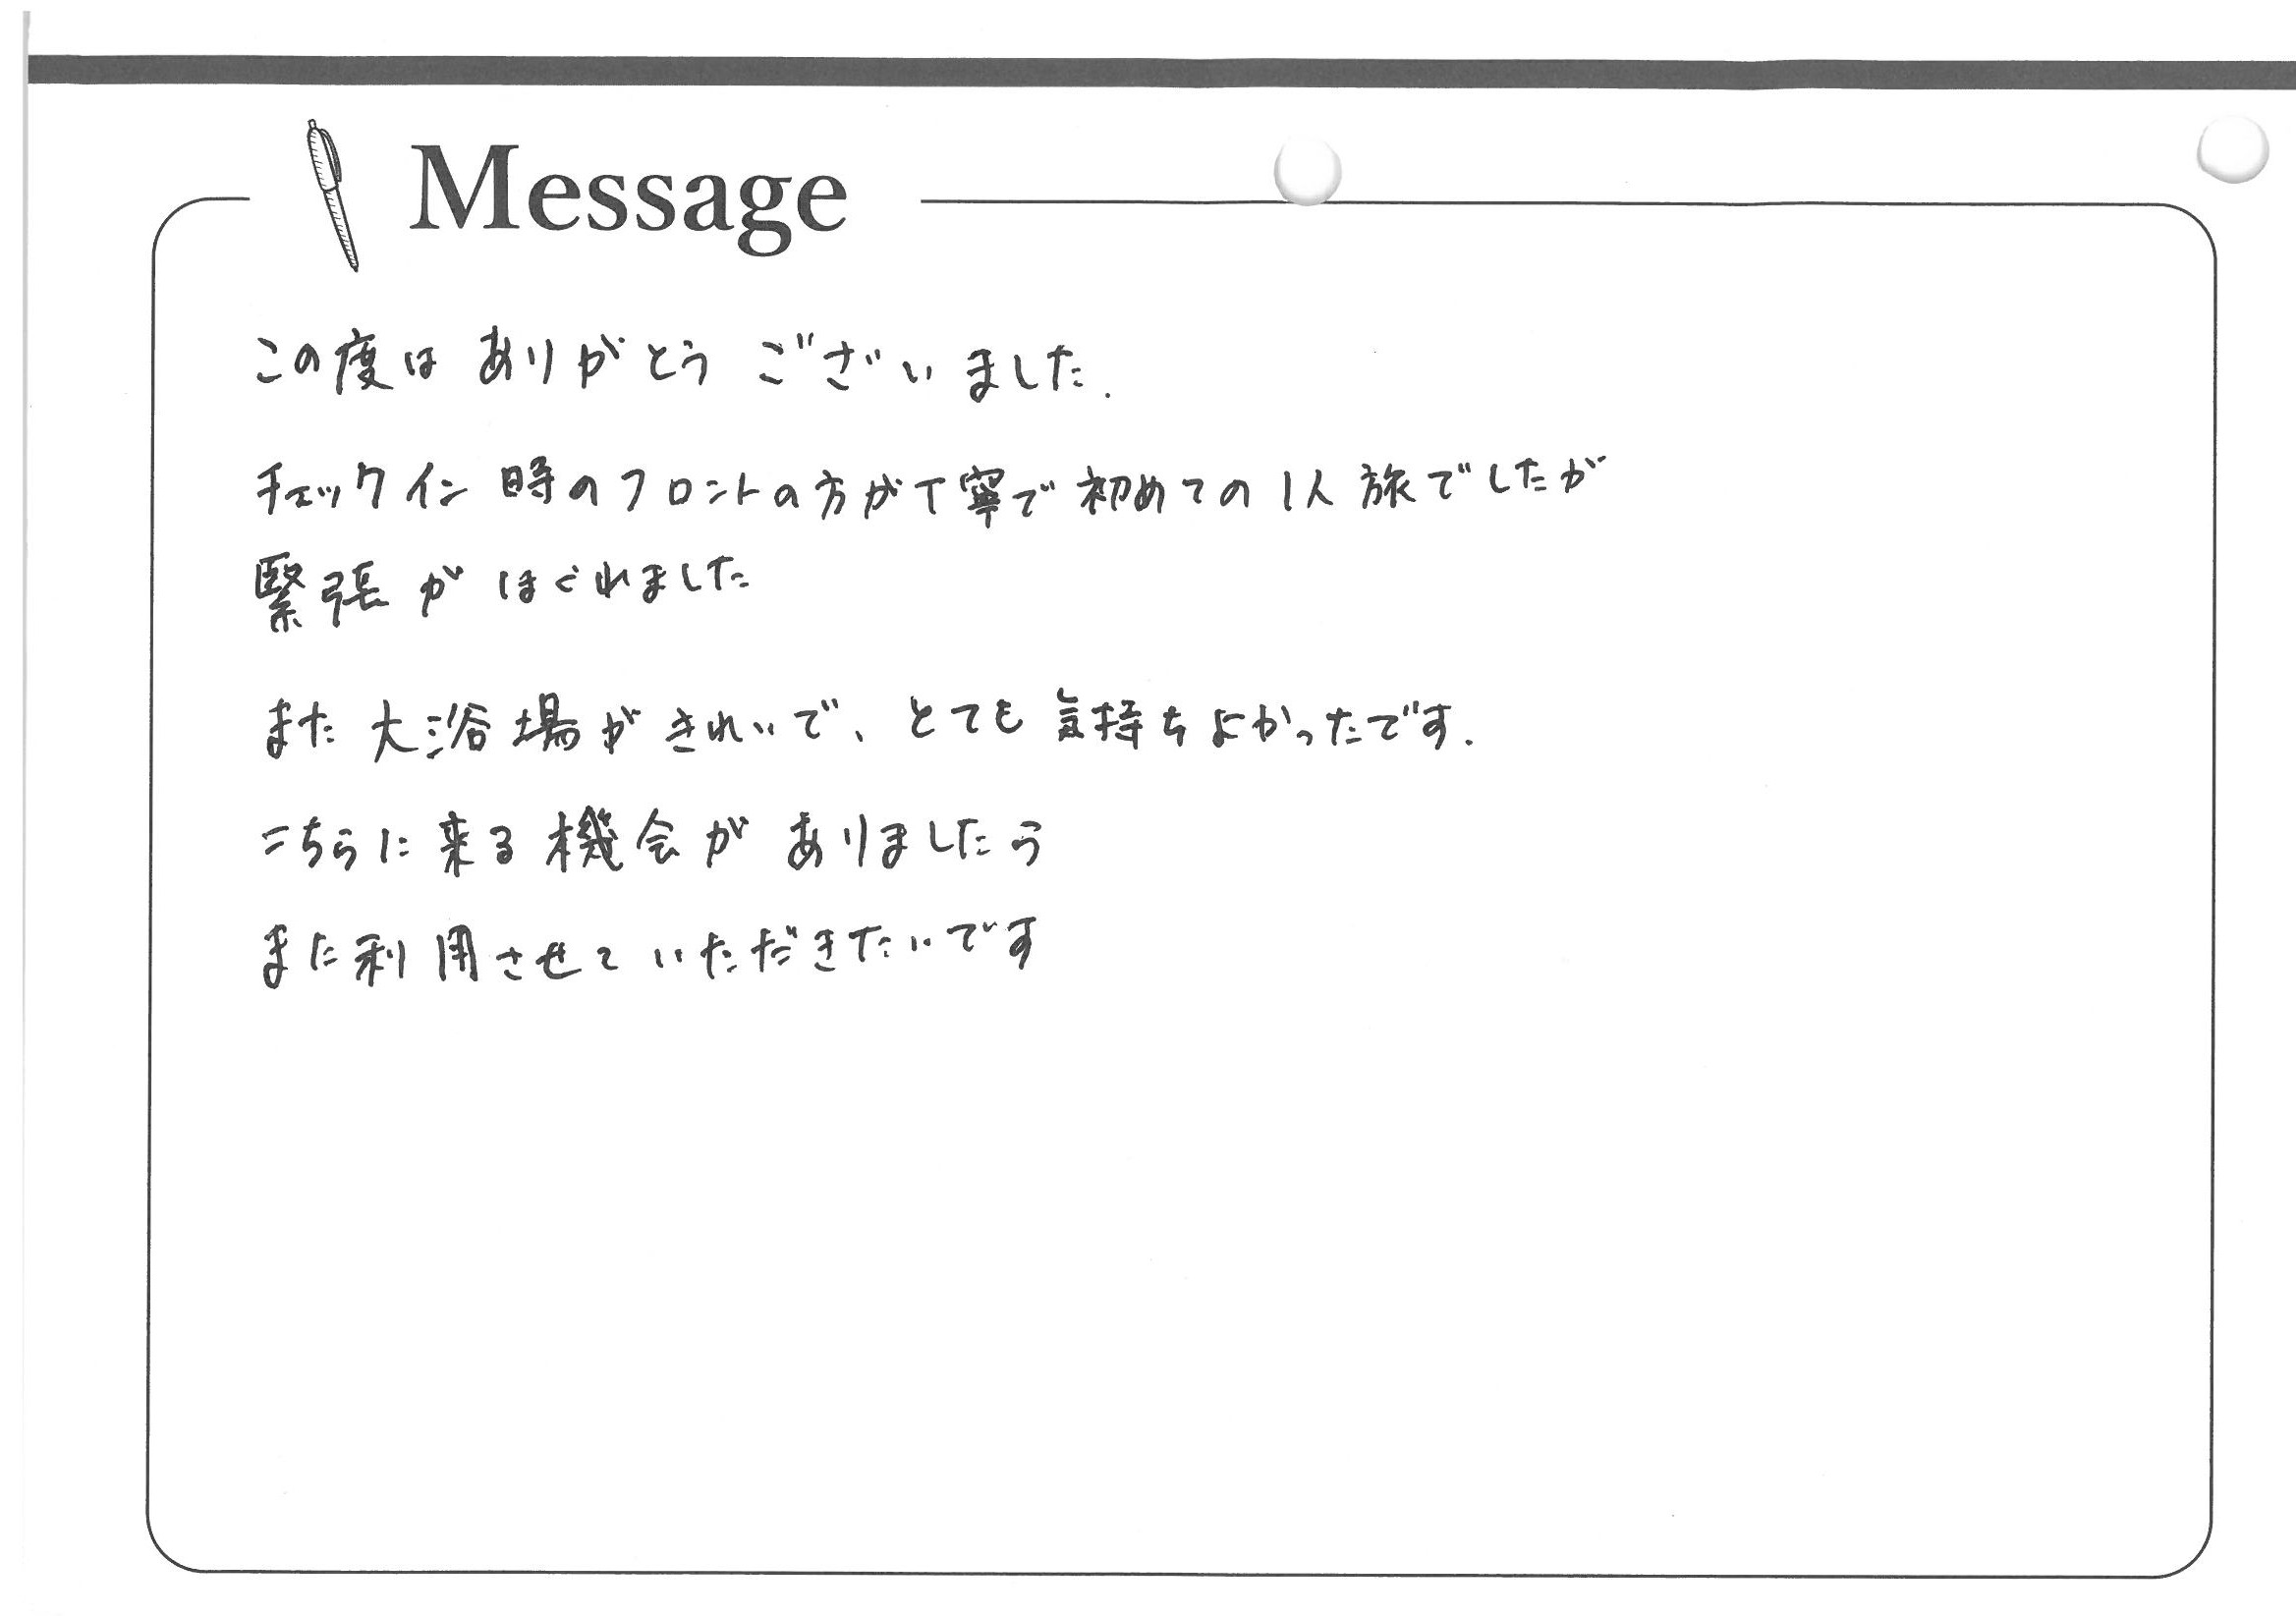 Message
この度はありがとうございました.
チェックイン時のフロントの方が丁寧で初めての1人旅でしたが
緊張がほぐれました
また大浴場がきれいで、とても気持ちよかったです.
こちらに来る機会がありましたら
また利用させていただきたいです